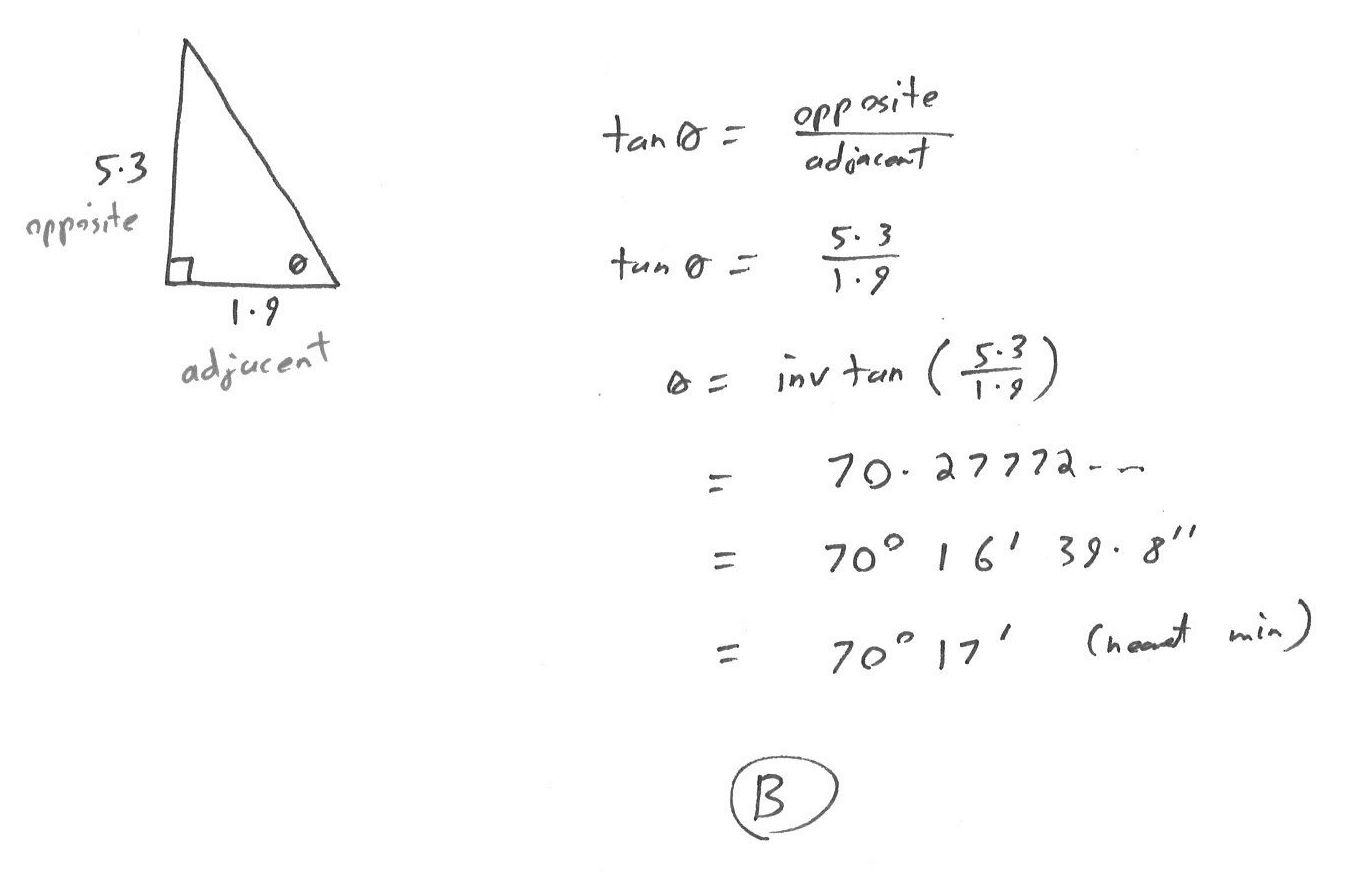 5.3
opposite
θ
1.9
adjacent
tan θ = opposite / adjacent
tan θ = 5.3 / 1.9
θ = inv tan ( 5.3 / 1.9 )
= 70.27772---
= 70° 16' 39.8"
= 70° 17' (nearest min)
B